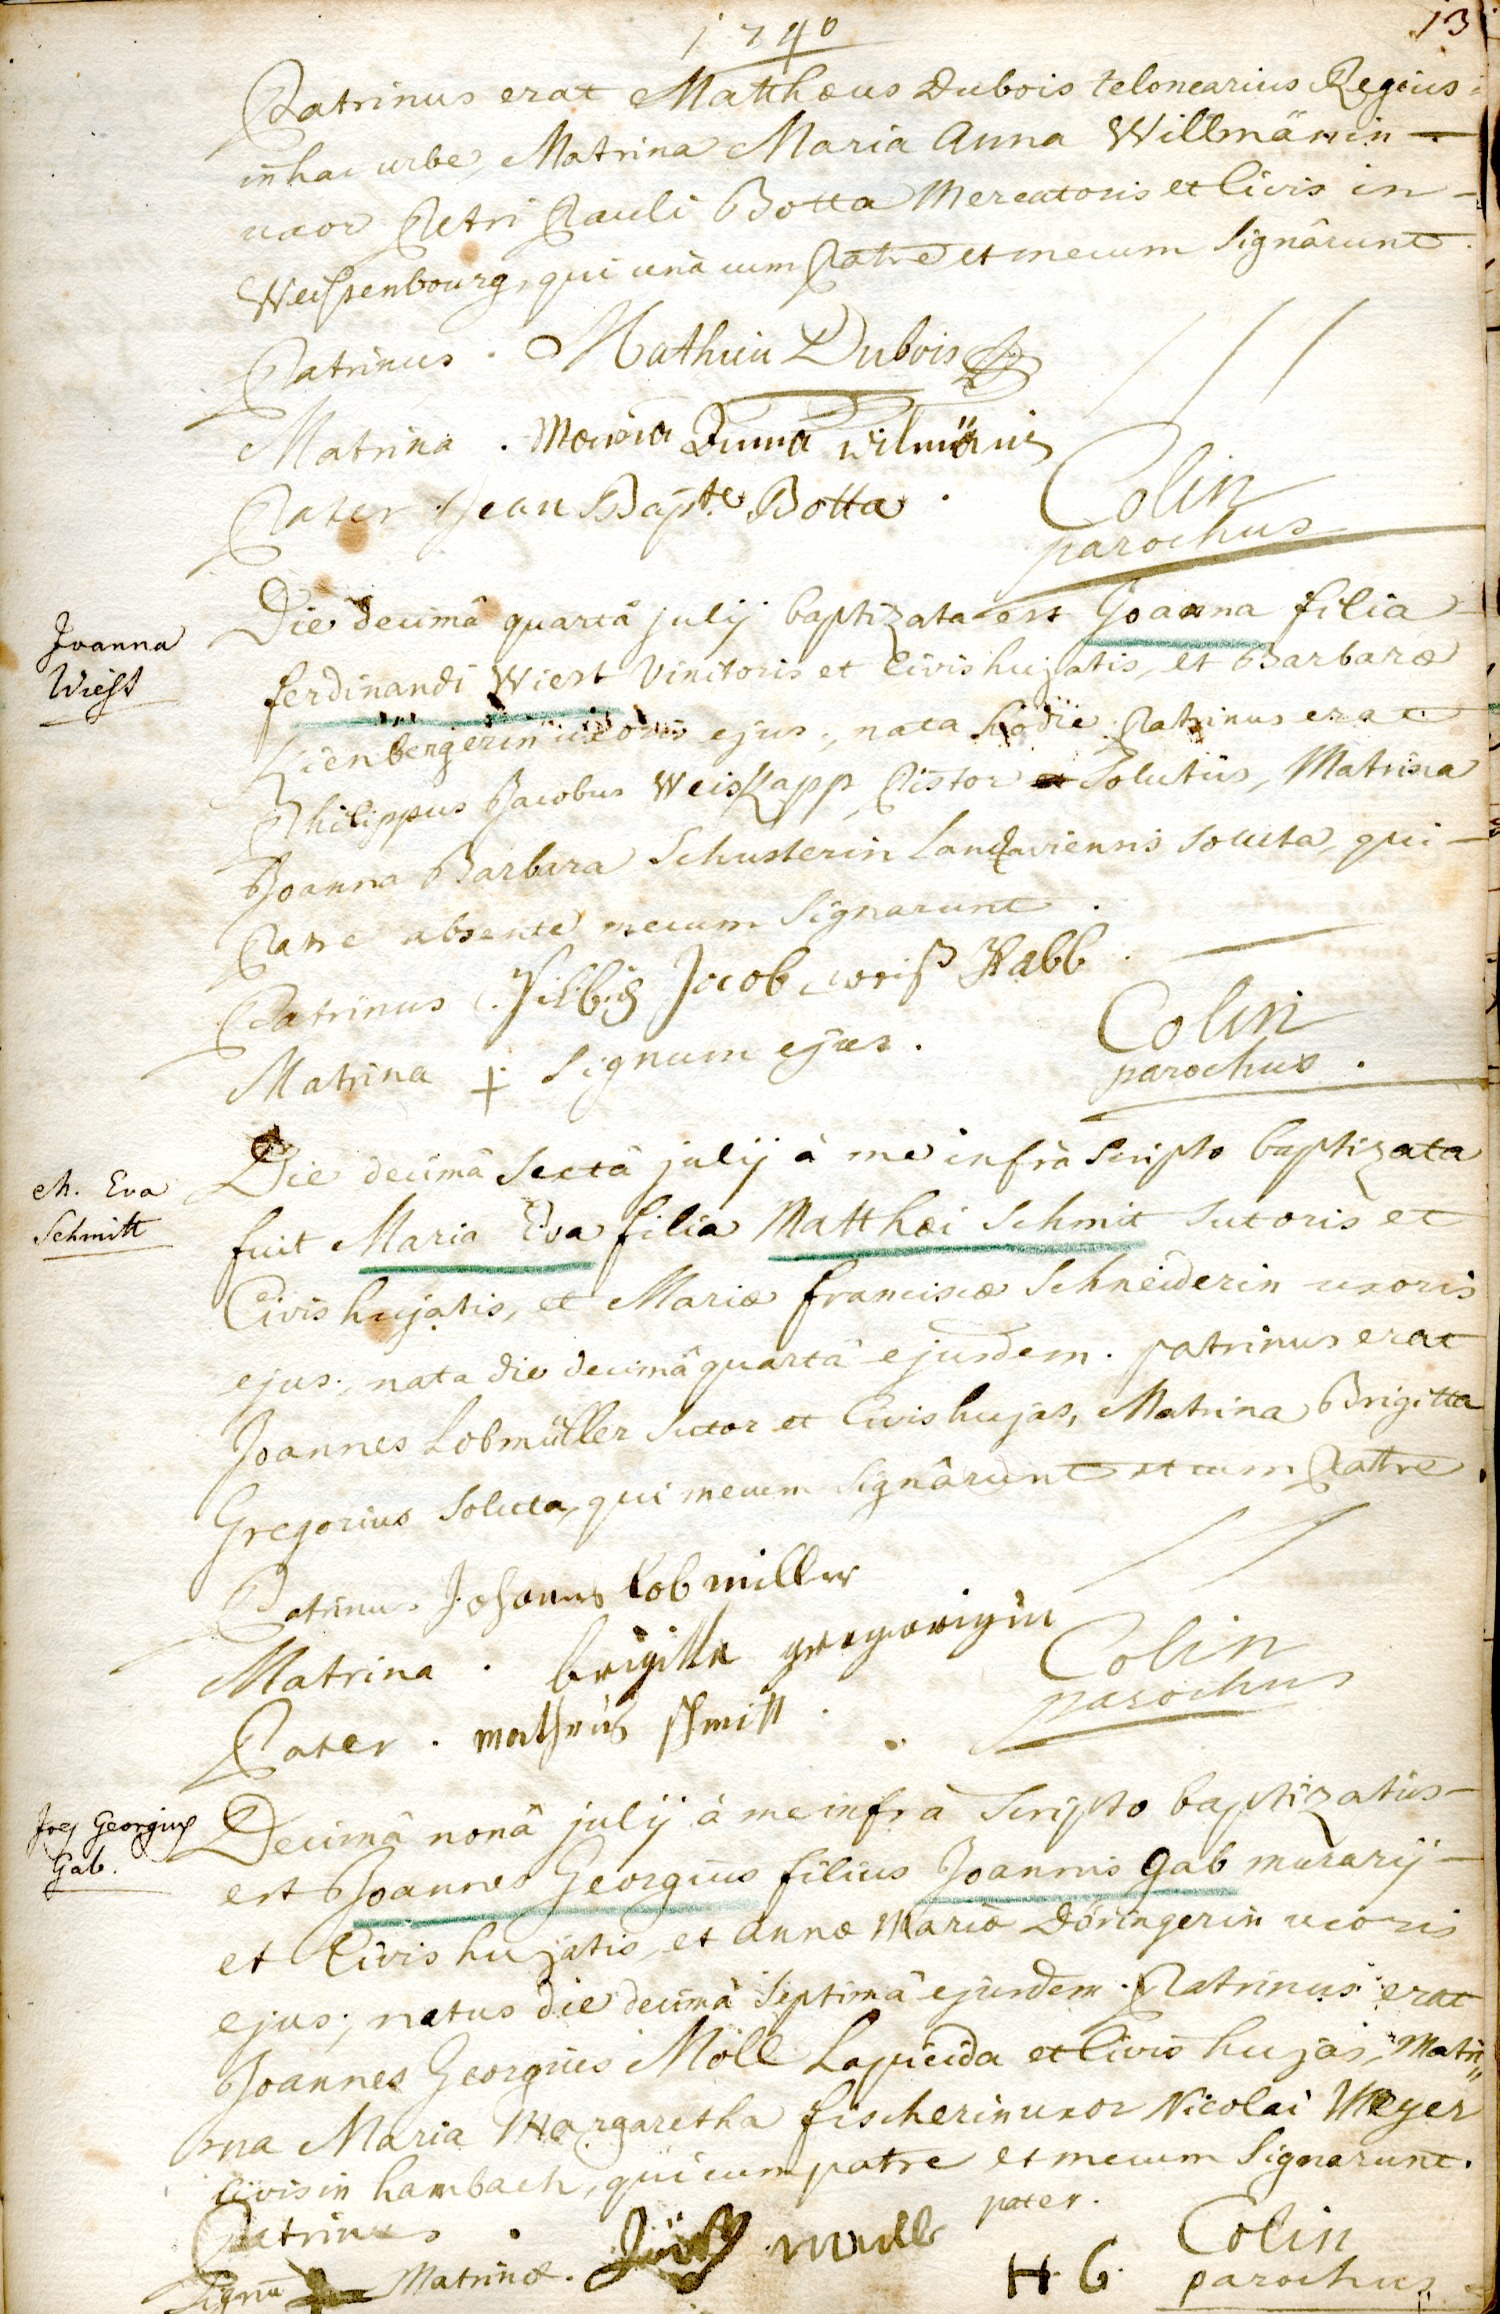 1740
13
Patrinus erat Matthæus Dubois telonearius Regius
in hac urbe, Matrina Maria Anna Willmänin
uxor Petri Pauli Botta Mercatoris et Civis in
Weissenbourg, qui unà cum Patre et mecum signârunt.
Patrinus. Mathieu Dubois
Matrina. Maria Anna wilmänin
Pater Jean Bapte. Botta.
Colin
parochus
Joanna
Wiest
Die decimâ quartâ julij baptizata est Joanna filia
ferdinandi Wiest Vinitoris et Civis hujatis, et Barbaræ
Kienbergerin uxoris ejus, nata hodie. Patrinus erat
Philippus Jacobus Weiskapp Pistor solutus, Matrina
Joanna Barbara Schusterin Landaviensis soluta, qui
Patre absente mecum signarunt.
Patrinus Jacob weiß Kabb
Matrina + Signum ejus.
Colin
parochus.
M. Eva
Schmitt
Die decimâ sextâ julij à me infrà scripto baptizata
fuit Maria Eva filia Matthæi Schmit sutoris et
Civis hujatis, et Mariæ franciscæ Schneiderin uxoris
ejus, nata die decimâ quartâ ejusdem. patrinus erat
Joannes Lobmüller sutor et Civis hujas, Matrina Brigitta
Gregorius soluta, qui mecum signârunt et cum Patre.
Patrinus Johannes lobmiller
Matrina. brigitta gregorigin
Pater. matheus schmitt.
Colin
parochus
Joes Georgius
Gab.
Decimâ nonâ julij à me infrà scripto baptizatus
est Joannes Georgius filius Joannis Gab murarij
et Civis hujatis, et Annæ Mariæ Döringerin uxoris
ejus, natus die decimâ septimâ ejusdem. Patrinus erat
Joannes Georgius Möll Lapicida et Civis hujas, Matri
na Maria Margaretha fischerin uxor Nicolai Meyer
Civis in hambach, qui cum patre et mecum signarunt.
Patrinus.
pater.
Colin
Signū + Matrinæ.
H. G.
parochus